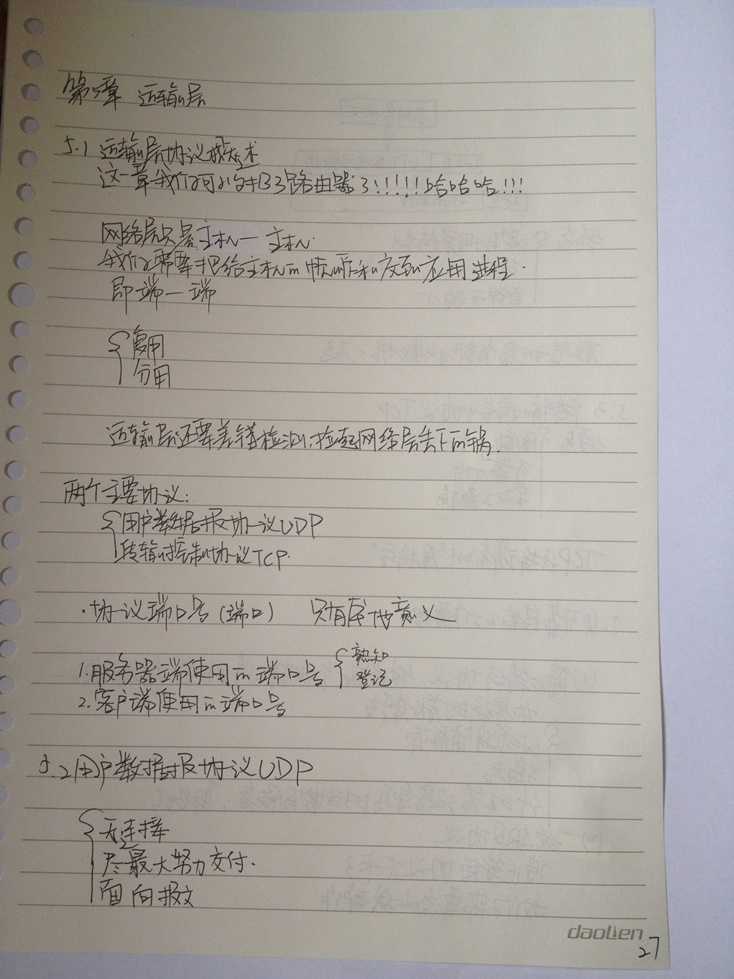 第5章 运输层
5.1 运输层协议概述
这一章我们可以分担了路由器了!!!!!哈哈哈!!!
网络层只是主机—主机.
我们需要把给主机的 顺序和交到应用进程.
即端—端
复用
分用
运输层还要差错检测,捡起网络层丢下的锅.
两个主要协议:
用户数据报协议UDP
传输控制协议TCP.
·协议端口号(端口) 只有本地意义
1.服务器端使用的端口号 熟知
登记
2.客户端使用的端口号
5.2用户数据报协议UDP
无连接
尽最大努力交付.
面向报文
daolien
27